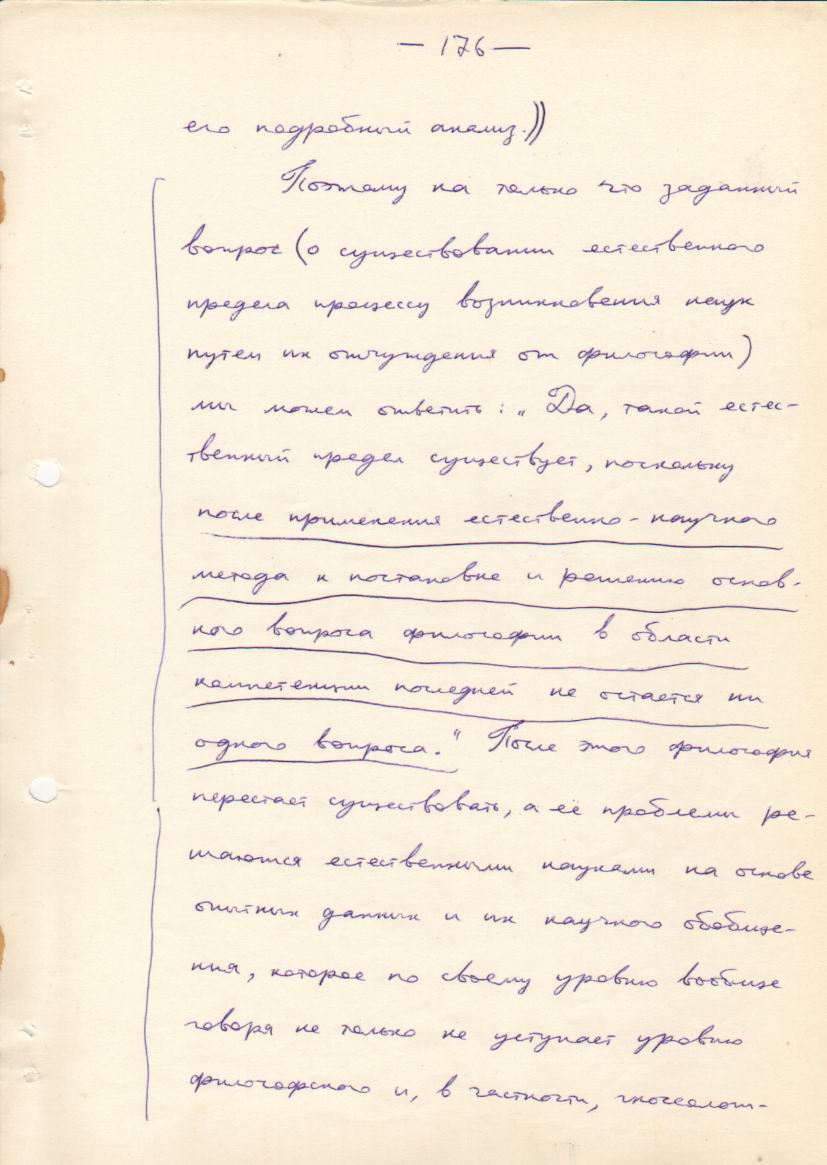 — 176 —
его подробный анализ.))
Поэтому на только что заданный
вопрос (о существовании естественного
предела процессу возникновения наук
путем их отчуждения от философии)
мы можем ответить: „Да, такой естес-
твенный предел существует, поскольку
после применения естественно-научного
метода к постановке и решению основ-
ного вопроса философии в области
компетенции последней не остается ни
одного вопроса." После этого философия
перестает существовать, а её проблемы ре-
шаются естественными науками на основе
опытных данных и их научного обобще-
ния, которое по своему уровню вообще
говоря не только не уступает уровню
философского и, в частности, гносеолог-